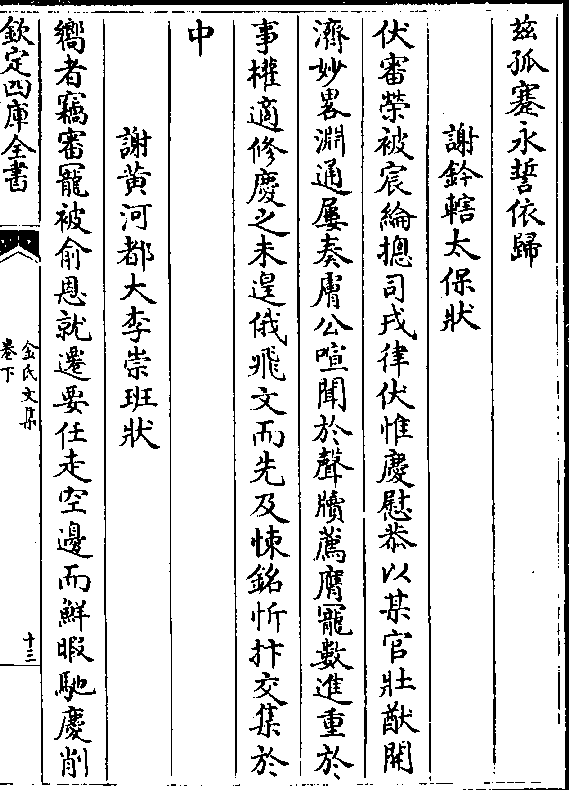 兹孤蹇永誓依歸
謝鈐轄太保狀
伏審榮被宸綸摠司戎律伏惟慶慰恭以某官壯猷開
濟妙畧淵通屢奏膚公喧聞於聲牘薦膺寵數進重於
事權適修慶之未遑俄飛文而先及悚銘忻抃交集於
中
謝黄河都大李崇班狀
嚮者竊審寵被俞恩就遷要任走空邊而鮮暇馳慶削
欽定四庫全書
金氏文集
卷下
十三